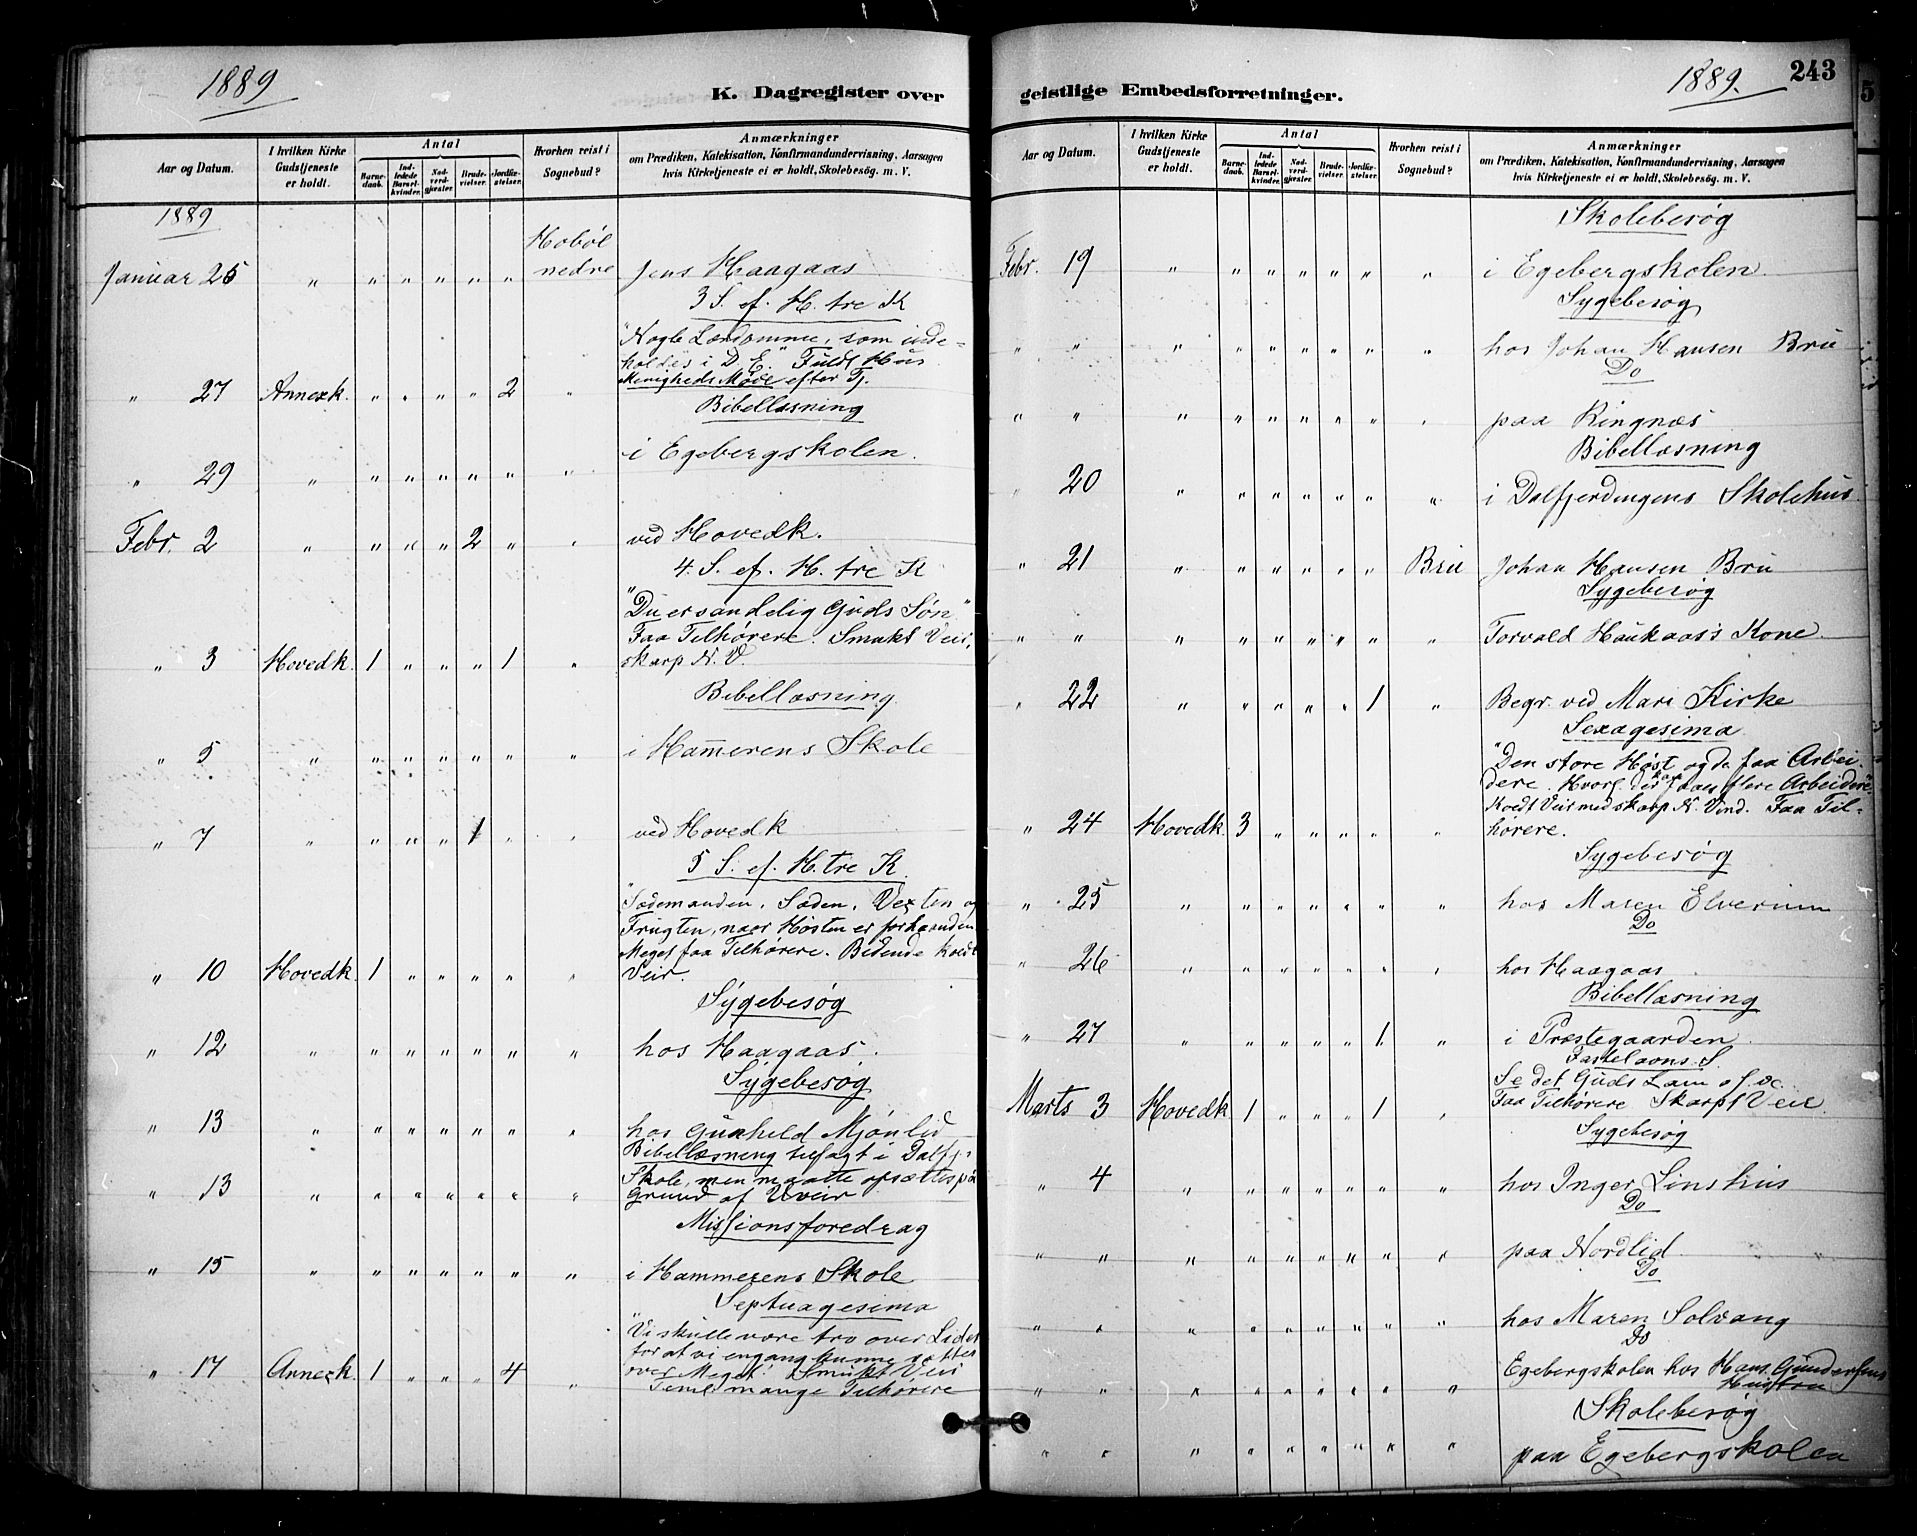 1889
K. Dagregister over
Aar og Datum.
I hvilken Kirke Gudstjeneste er holdt.
Antal
Barnedaab.
Indledede Barselkvinder.
Nadverdgjester.
Brudevielser.
Jordfæstelser.
Hvorhen reist i Sognebud?
Anmærkninger
om Prædiken, Katekisation, Konfirmandundervisning, Aarsagen
hvis Kirketjeneste ei er holdt, Skolebesøg. m. V.
1889
Hobøl
Januar 25 " " " " " " nedre Jens Haagaas
3 S. ef. H. tre K
"Nogle Lærdomme, som inde-
holdes i D. E." Fuldt Hus
Menigheds Møde efter Tj.
" 27 Annexk. " " " " 2 "
Bibellæsning
i Egebergskolen.
" 29 " " " " " " "
Febr. 2 " " " " 2 " " ved Hovedk.
4. S. ef. H. tre K
"Du er sandelig Guds Søn"
Faa Tilhørere. Smukt Veir,
" 3 Hovedk. 1 " " " 1 " skarp N. V.
Bibellæsning
" 5 " " " " " " " i Hamerens Skole
" 7 " " " " 1 " " ved Hovedk
5 S. ef. H. tre K.
"Sædemanden, Sæden, Vexten og
Frugten, naar Høsten er forhaanden
Meget faa Tilhørere. Bidende koldt
" 10 Hovedk 1 " " " " " Veir.
Sygebesøg
" 12 " " " " " " " hos Haagaas.
Sygebesøg
" 13 " " " " " " " hos Gunhild Mjønlid
Bibellæsning tilsagt i Dalfj.
Skole, men maatte opsættes på
" 13 " " " " " " " Grund af Uveir
Missionsforedrag
" 15 " " " " " " " i Hammerens Skole
Septuagesima
"Vi skulle være tro over Lidet
for at vi engang kunne sættes
" 17 Annexk. 1 " " " 4 " over Meget! Smukt Veir
Teml. mange Tilhørere
geistlige Embedsforretninger.
1889.
243
Aar og Datum.
I hvilken Kirke Gudstjeneste er holdt.
Antal
Barnedaab.
Indledede Barselkvinder.
Nadverdgjester.
Brudevielser.
Jordfæstelser.
Hvorhen reist i Sognebud?
Anmærkninger
om Prædiken, Katekisation, Konfirmandundervisning, Aarsagen
hvis Kirketjeneste ei er holdt, Skolebesøg. m. V.
Skolebesøg
Febr. 19 " " " " " " " i Egebergskolen.
Sygebesøg
" " " " " " " " " hos Johan Hansen Bru
Do
" " " " " " " " " paa Ringnæs
Bibellæsning
" 20 " " " " " " " i Dalfjerdingens Skolehus
" 21 " " " " " " Bru Johan Hansen Bru
Sygebesøg
" " " " " " " " " Torvald Haukaas's Kone.
" 22 " " " " " 1 " Begr. ved Mari Kirke
Sexagesima
"Den store Høst og de faa Arbei-
dere. Hvorl. der kan faaes flere Arbeidere"
Koldt Veir med skarp N. Vind. Faa Til-
" 24 Hovedk. 3 " " " " " hørere.
Sygebesøg
" 25 " " " " " " " hos Maren Elverum
Do
" 26 " " " " " " " hos Haagaas
Bibellæsning
" 27 " " " " " 1 " i Præstegaarden.
Fastelavns. S.
Se det Guds Lam
Marts 3 Hovedk 1 " " " 1 " Faa Tilhørere Skarpt Veir.
Sygebesøg
" 4 " " " " " " " hos Inger Linshus
Do
" " " " " " " " " paa Nordlid.
Do
" " " " " " " " " hos Maren Solvang
Do
" " " " " " " " " Egebergskolen hos Hans Gundersens
Hustru
Skolebesøg
" " " " " " " " " paa Egebergskolen